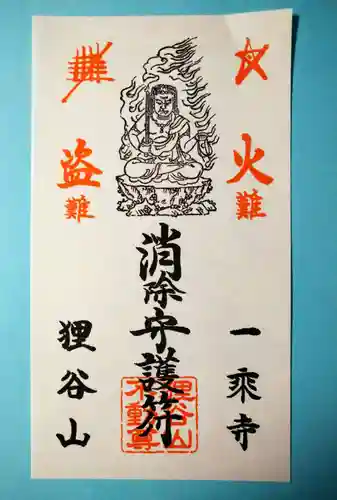 火難
一乗寺
消除守護符
狸谷山
不動尊
盗難
狸谷山